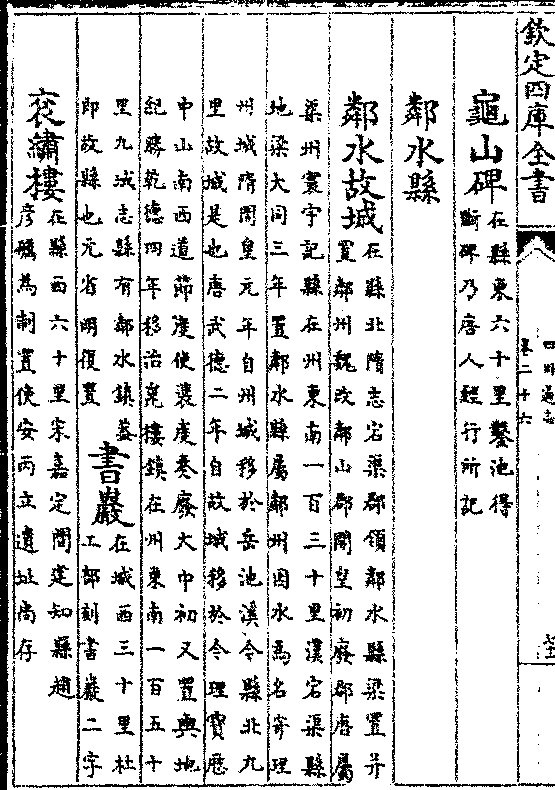 欽定四庫全書
四川通志
卷二十六
龜山碑
在縣東六十里鑿池得
斷碑乃唐人經行所記
鄰水縣
鄰水故城
在縣北隋志宕渠郡領鄰水縣梁置并
置鄰州魏改鄰山郡開皇初廢郡唐屬
渠州寰宇記縣在州東南一百三十里漢宕渠縣
地梁大同三年置鄰水縣屬鄰州因水為名寄理
州城隋開皇元年自州城移於岳池溪今縣北九
里故城是也唐武德二年自故城移於今理寶厯
中山南西道節度使裴度奏廢大中初又置輿地
紀勝乾德四年移治崑樓鎮在州東南一百五十
里九域志縣有鄰水鎮蓋
即故縣也元省明復置
書巖
在城西三十里杜
工部刻書巖二字
衮繡樓
在縣西六十里宋嘉定間建知縣趙
彥為制置使安丙立遺址尚存